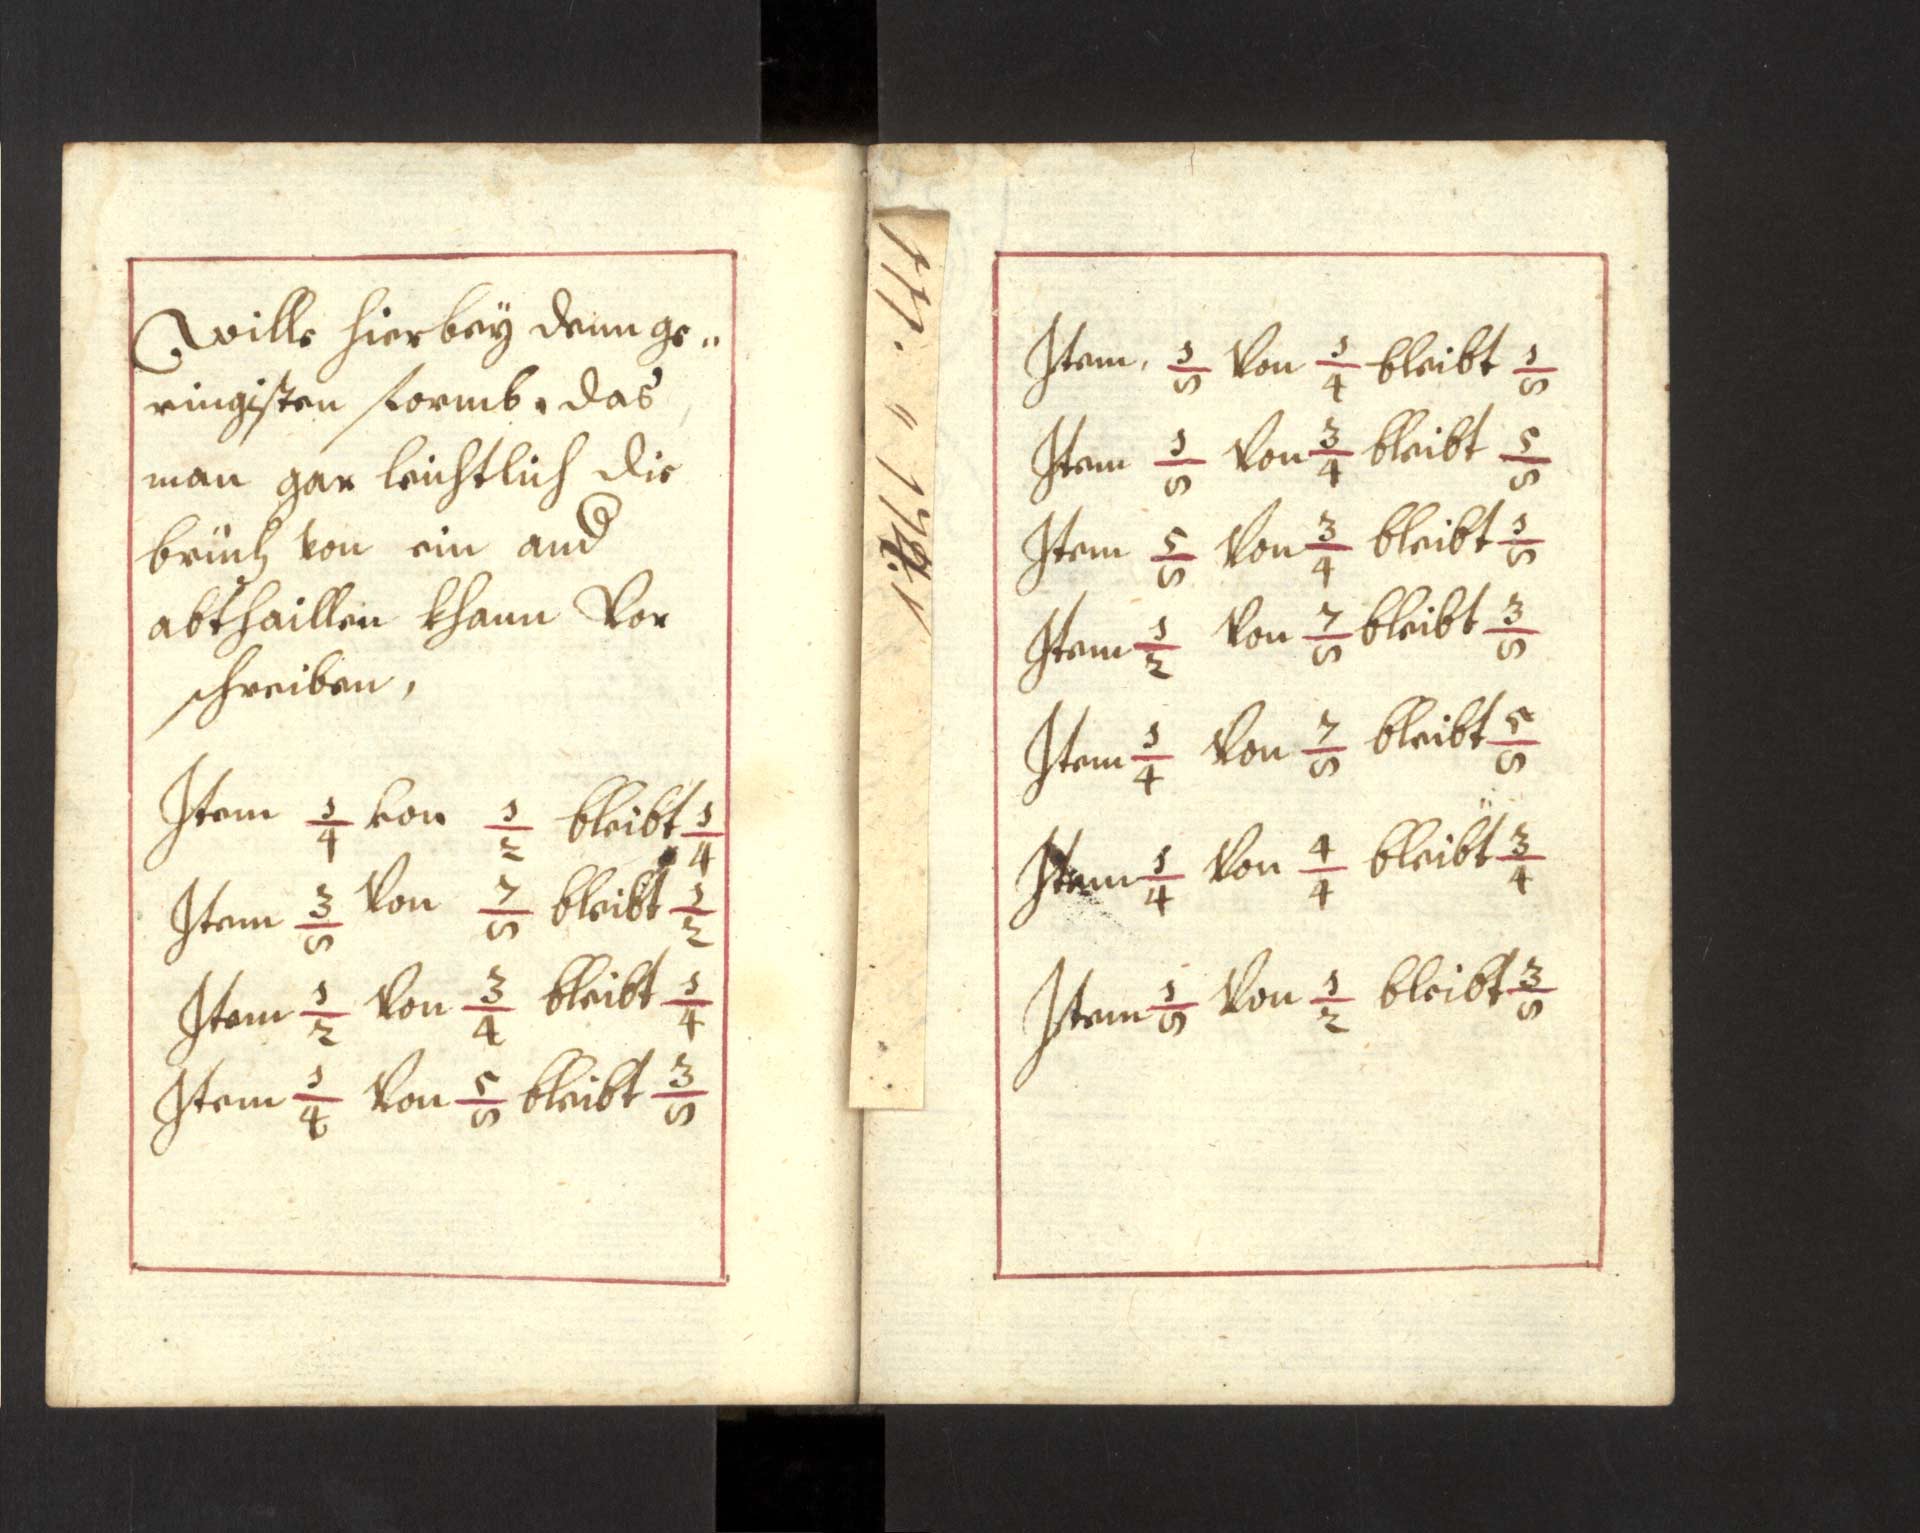 Wille hierbey denn ge„
ringisten formb. das
man gar leichtlich die
brüch von ein and
abthaillen khann Vor
schreiben,
Item 1/4 von 1/2 bleibt 1/4
Item 3/8 Von 7/8 bleibt 1/2
Item 1/2 Von 3/4 bleibt 1/4
Item 1/4 Von 5/8 bleibt 3/8
Item, 1/8 Von 1/4 bleibt 1/8
Item 1/8 Von 3/4 bleibt 5/8
Item 5/8 Von 3/4 bleibt 1/8
Item 1/2 Von 7/8 bleibt 3/8
Item 1/4 Von 7/8 bleibt 5/8
Item 1/4 Von 4/4 bleibt 3/4
Item 1/8 Von 1/2 bleibt 3/8